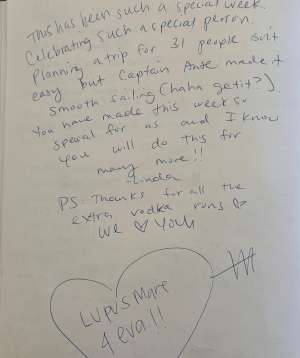 This has been such a special week.
Celebrating such a special person.
Planning a trip for 31 people isn't
easy but Captain Ante made it
smooth sailing (haha get it?)
You have made this week so
special for us and I know
you will do this for
many more!!
-Linda
PS: Thanks for all the
extra vodka runs ♡
We ♡ You
LUPUS MARE
4 eva!!